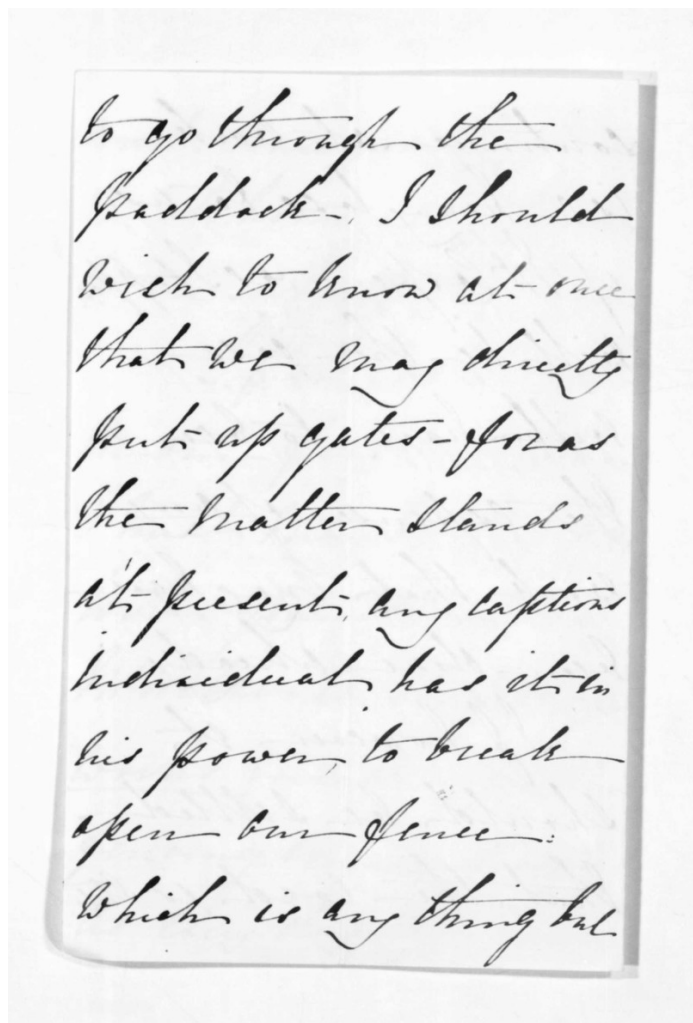 to go through the
paddock. I should
wish to know at once
that we may directly
put up gates - for as
the matter stands
at present, any captious
individual, has it in
his power, to break
open our fence.
which is any thing but